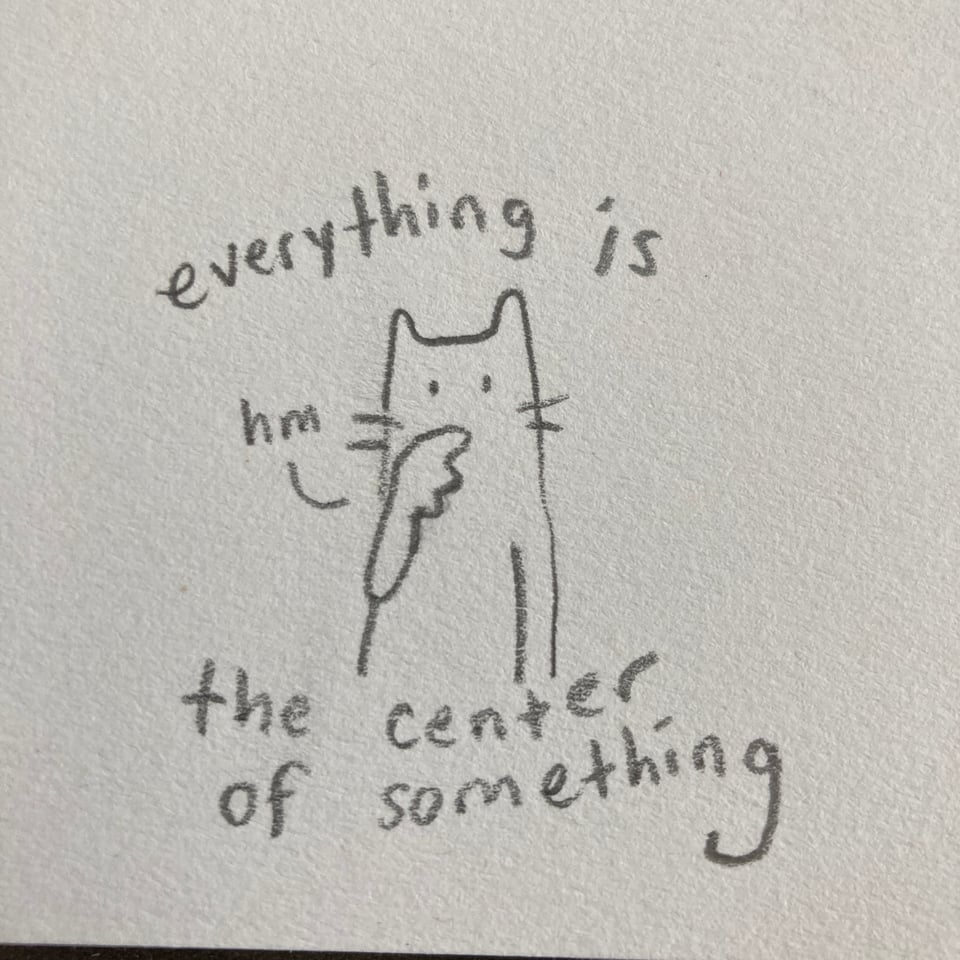 everything is
hm
the center
of something